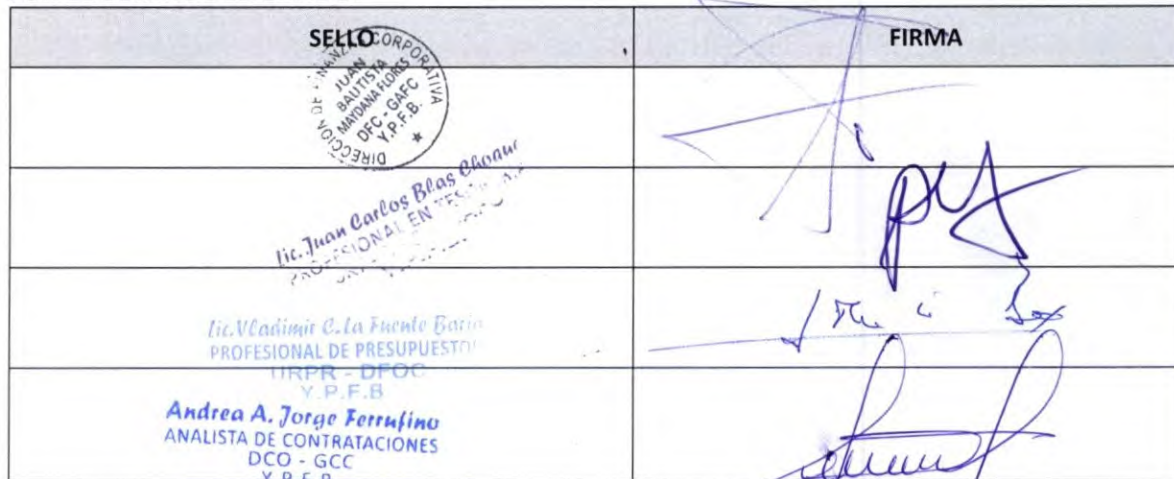 SELLO
FIRMA
DIRECCION DE FINANZAS CORPORATIVA
JUAN
BAUTISTA
MAYDANA FLORES
DFC - GAFC
Y.P.F.B.
Lic. Juan Carlos Blas Choque
PROFESIONAL EN
Lic. Vladimir C. La Fuente
PROFESIONAL DE PRESUPUESTO
URPR - DFOC
Y.P.F.B
Andrea A. Jorge Ferrufino
ANALISTA DE CONTRATACIONES
DCO - GCC
Y.P.F.B.